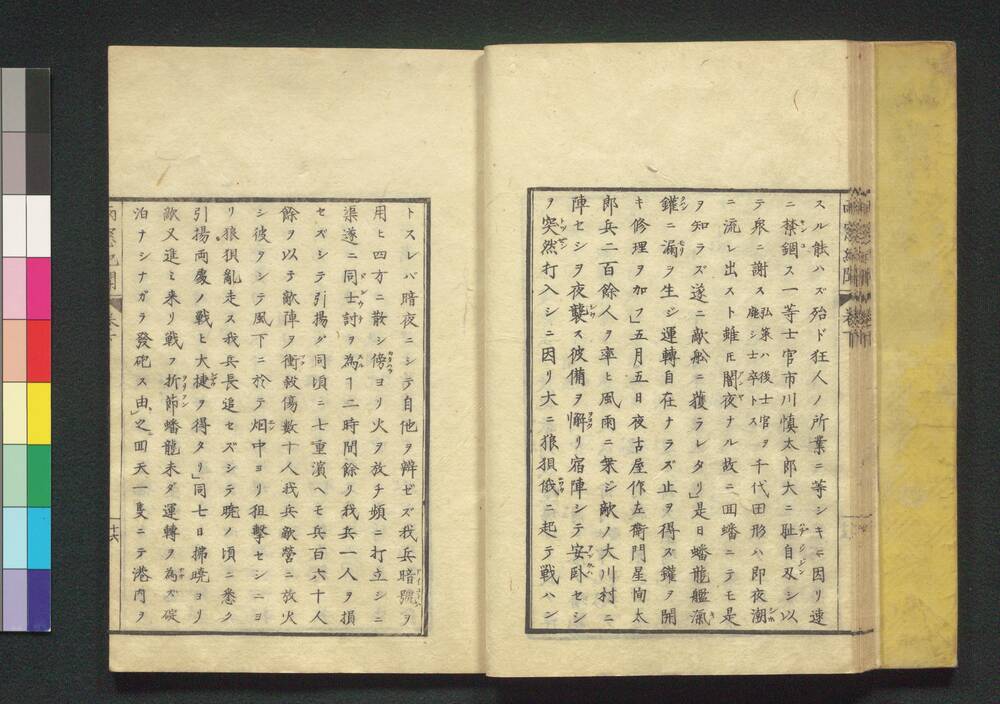 スル能ハズ殆ド狂人ノ所業ニ等シキニ因リ速
ニ禁錮ス一等士官市川慎太郎大ニ耻自刄シ以
テ衆ニ謝ス弘策ハ後士官ヲ廃シ士卒トス千代田形ハ即夜潮
ニ流レ出スト雖𪜈闇夜ナル故ニ回蟠ニテモ是
ヲ知ラズ遂ニ敵舩ニ獲ラレタリ」是日蟠龍艦滊
鑵ニ漏ヲ生シ運轉自在ナラズ止ヲ得ズ鑵ヲ開
キ修理ヲ加フ」五月五日夜古屋作左衛門星恂太
郎兵二百餘人ヲ率ヒ風雨ニ乗シ敵ノ大川村ニ
陣セシヲ夜襲ス彼備ヲ懈リ宿陣シテ安卧セシ
ヲ突然打入シニ因リ大ニ狼狽俄ニ起テ戦ハン
トスレバ暗夜ニシテ自他ヲ辨ゼズ我兵暗號ヲ
用ヒ四方ニ散シ傍ヨリ火ヲ放チ頻ニ打立シニ
渠遂ニ同士討ヲ為ヿ二時間餘リ我兵一人ヲ損
セズシテ引揚グ同頃ニ七重濱ヘモ兵百六十人
餘ヲ以テ敵陣ヲ衝殺傷数十人我兵敵營ニ放火
シ彼ヲシテ風下ニ於テ烟中ヨリ狙擊セシニヨ
リ狼狽亂走ス我兵長追セズシテ曉ノ頃ニ悉ク
引揚両慶ノ戦ヒ大捷ヲ得タリ」同七日拂曉ヨリ
敵又進ミ来リ戦フ折節蟠龍未ダ運轉ヲ為ズ碇
泊ナシナガラ發砲ス由之回天一隻ニテ港内ヲ
十六